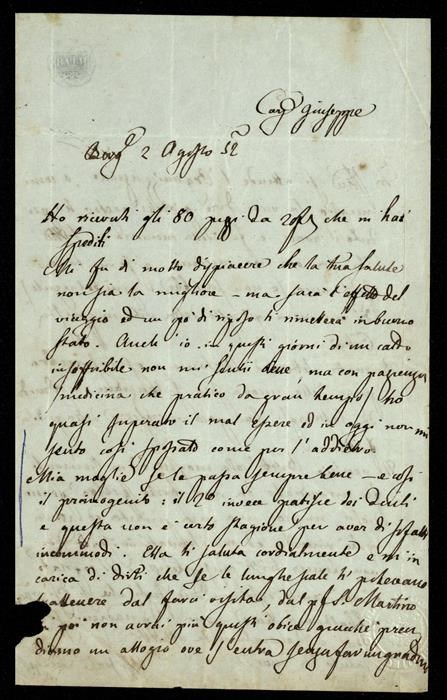 BATH
Caro Giuseppe
Borgo 2 Agosto 52
Ho ricevuti gli 80 pezzi da 20 f che mi hai
spediti
Mi fu di molto dispiacere che la tua salute
non sia la migliore – ma sarà l'effetto del
viaggio ed un po' di riposo ti rimetterà in buono
stato. Anch'io in questi giorni di un caldo
insoffribile non mi sentii bene, ma con pazienza
medicina che pratico da gran tempo ho
quasi superato il mal essere ed in oggi non mi
sento così spossato come per l'addietro.
Mia moglie se la passa sempre bene – e così
il primogenito: il 2º invece patisce dei denti
e questa non è certo stagione per aver di
incommodi. Essa ti saluta cordialmente e m'in
carica di dirti che se le lunghe scale ti potevano
trattenere dal farci visita, dal pf. S. Martino
in poi non avrai più questi obici giacchè pren
diamo un allogio ove s'entra senza far un gradino